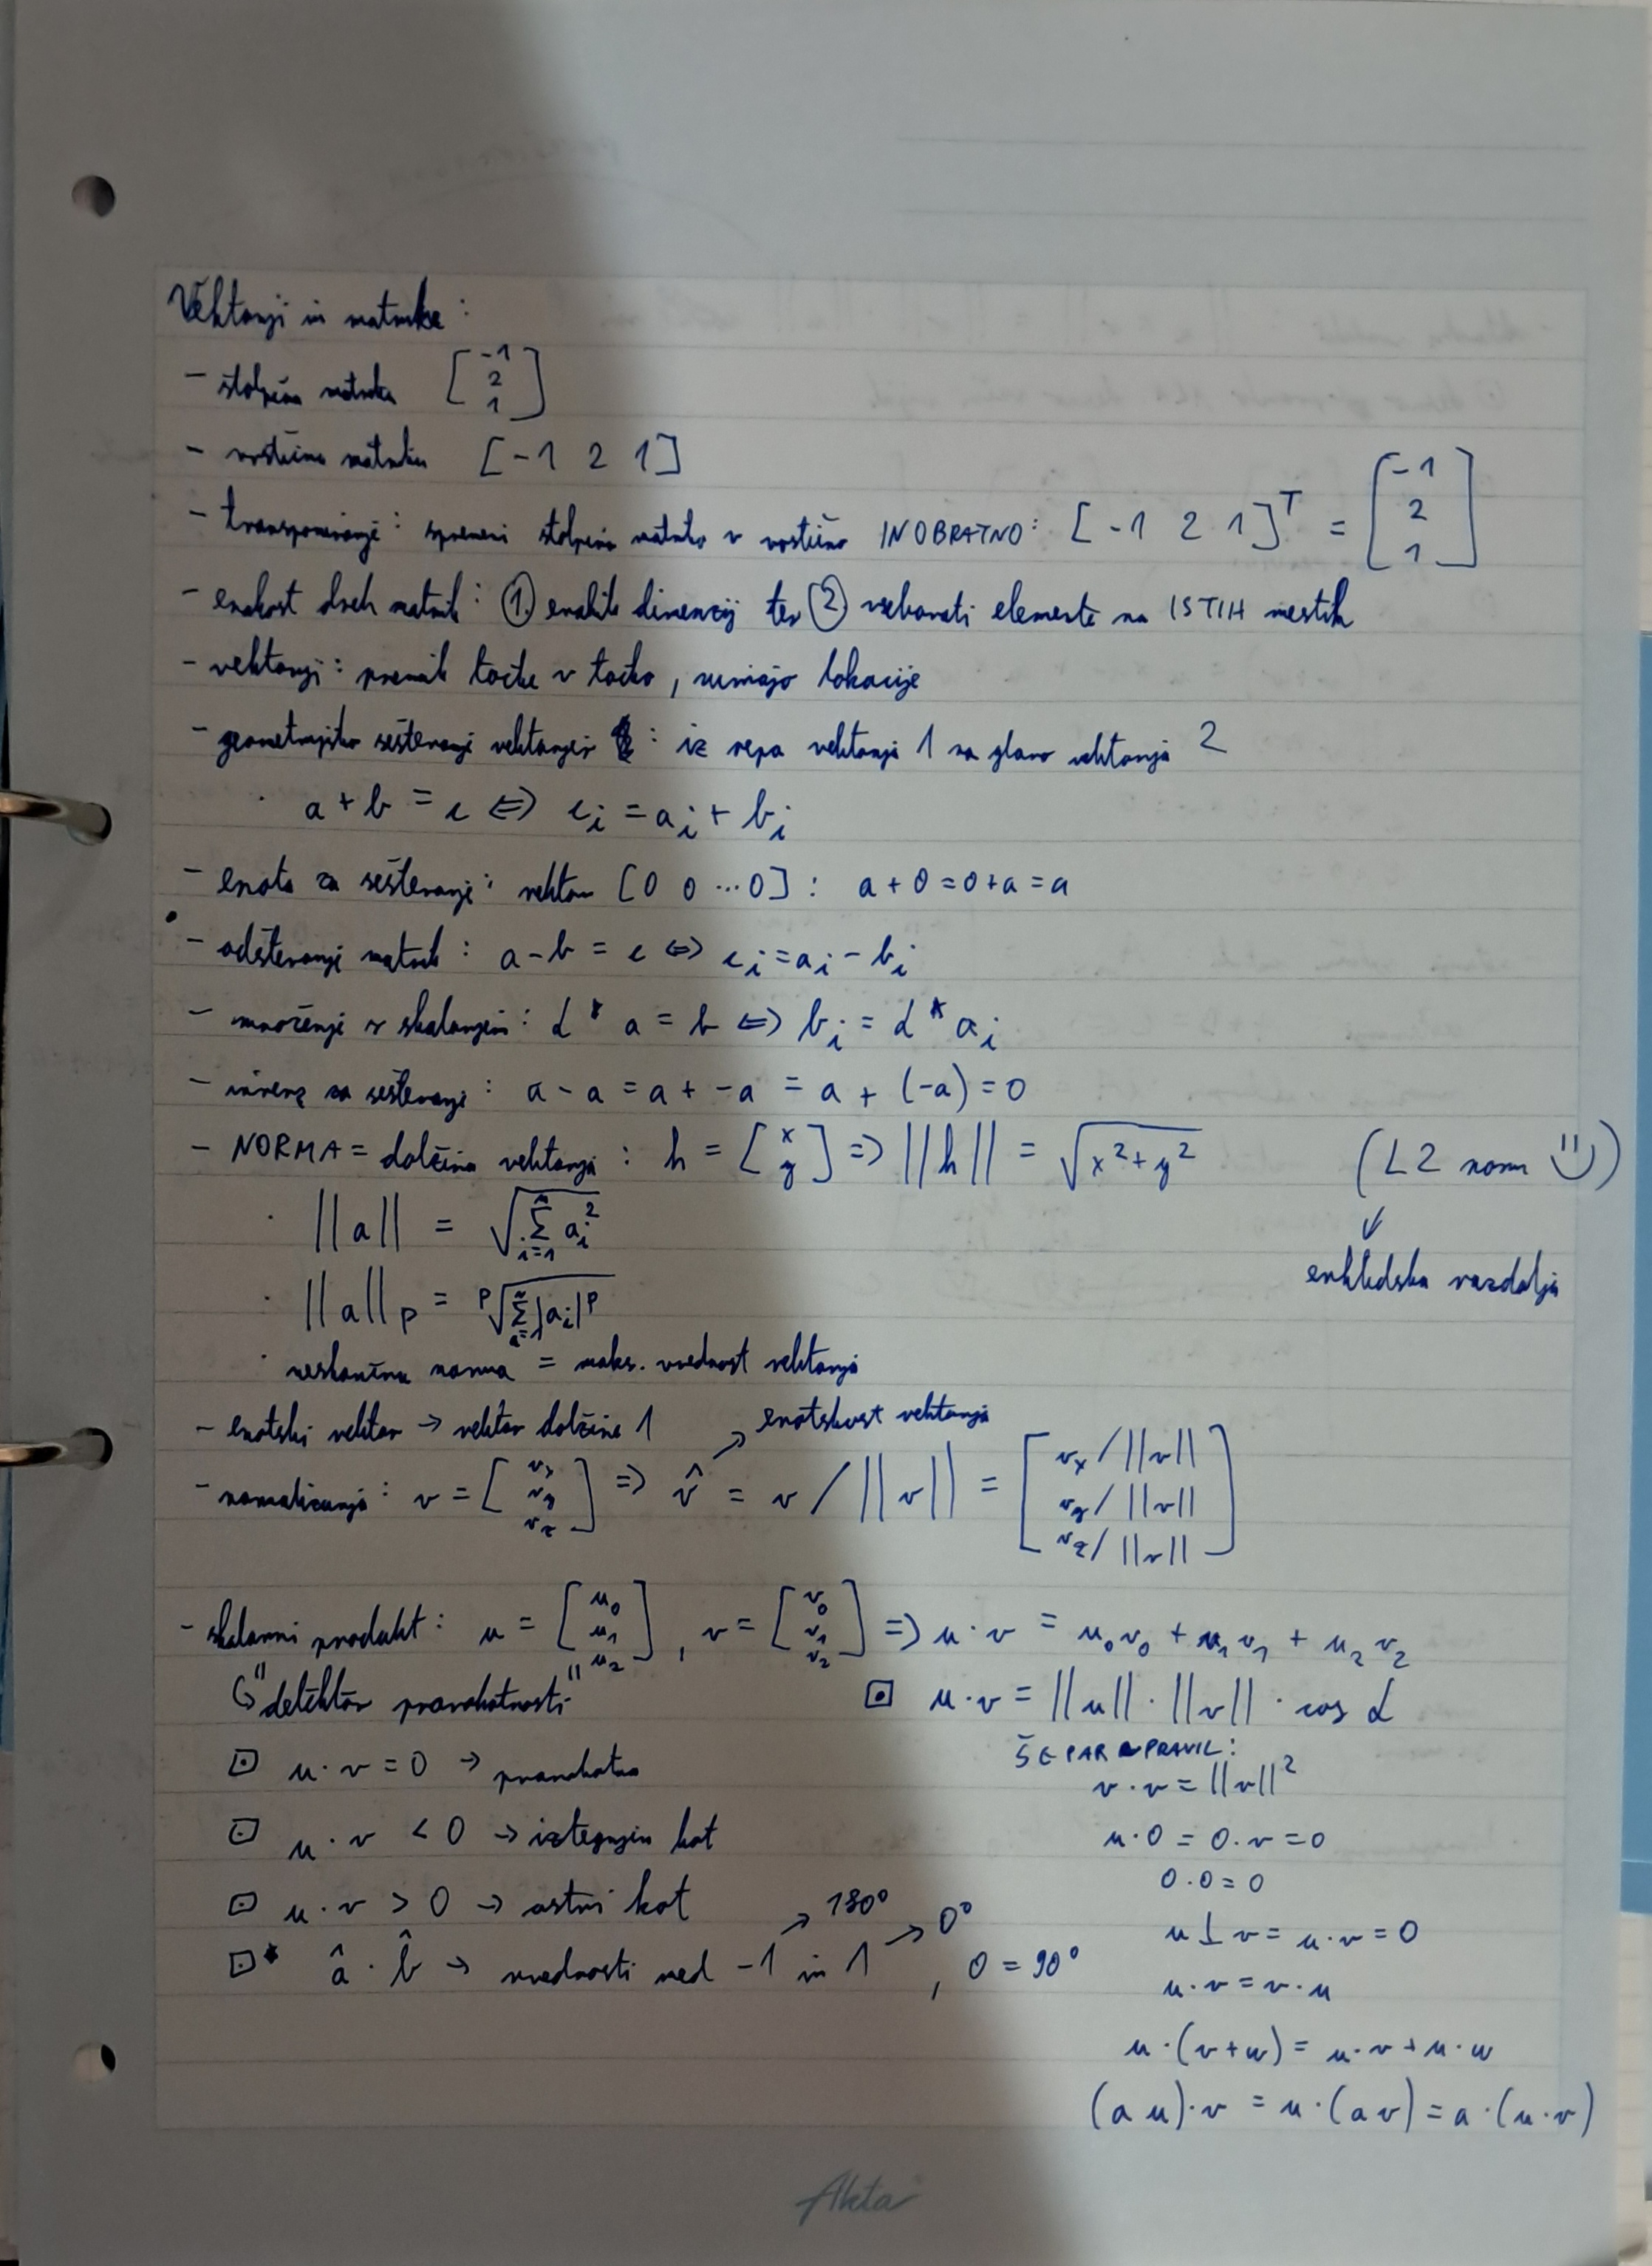 Vektorji in matrike:
- stolpična matrika [-1 2 1]
- vrstična matrika [-1 2 1]
- transponiranje: spremeni stolpično matriko v vrstično IN OBRATNO: [-1 2 1]ᵀ = [-1 2 1]
- enakost dveh matrik: ① enakih dimenzij ter ② vsebovati elemente na ISTIH mestih
- vektorji: premik točke v točko, nimajo lokacije
- geometrijsko seštevanje vektorjev : iz repa vektorja 1 na glavo vektorja 2
· a + b = c ⇔ cᵢ = aᵢ + bᵢ
- enota za seštevanje: vektor [0 0 ... 0] : a + 0 = 0 + a = a
- odštevanje matrik: a - b = c ⇔ cᵢ = aᵢ - bᵢ
- množenje s skalarjem: α * a = b ⇔ bᵢ = α * aᵢ
- inverz za seštevanje: a - a = a + -a = a + (-a) = 0
- NORMA = dolžina vektorja: h = [x y] => ||h|| = √(x² + y²) (L2 norm ☺)
· ||a|| = √(Σᵢ₌₁ⁿ aᵢ²)
↓
evklidska razdalja
· ||a||ₚ = ᵖ√(Σ|aᵢ|ᵖ)
· neskončna norma = maks. vrednost vektorja
- enotski vektor → vektor dolžine 1 ↗ enotskost vektorja
- normalizacija: v = [vₓ v_y v_z] => v̂ = v / ||v|| = [vₓ/||v|| v_y/||v|| v_z/||v||]
- skalarni produkt: u = [u₀ u₁ u₂], v = [v₀ v₁ v₂] => u · v = u₀v₀ + u₁v₁ + u₂v₂
↳ "detektor pravokotnosti"
⊡ u · v = ||u|| · ||v|| · cos α
⊡ u · v = 0 → pravokotna
⊡ u · v < 0 → iztegnjen kot
⊡ u · v > 0 → ostri kot
⊡* â · b̂ → vrednosti med -1 ↗ 180° in 1 ↗ 0°, 0 = 90°
ŠE PAR PRAVIL:
v · v = ||v||²
u · 0 = 0 · v = 0
0 · 0 = 0
u ⊥ v = u · v = 0
u · v = v · u
u · (v + w) = u · v + u · w
(a u) · v = u · (a v) = a · (u · v)
Akta